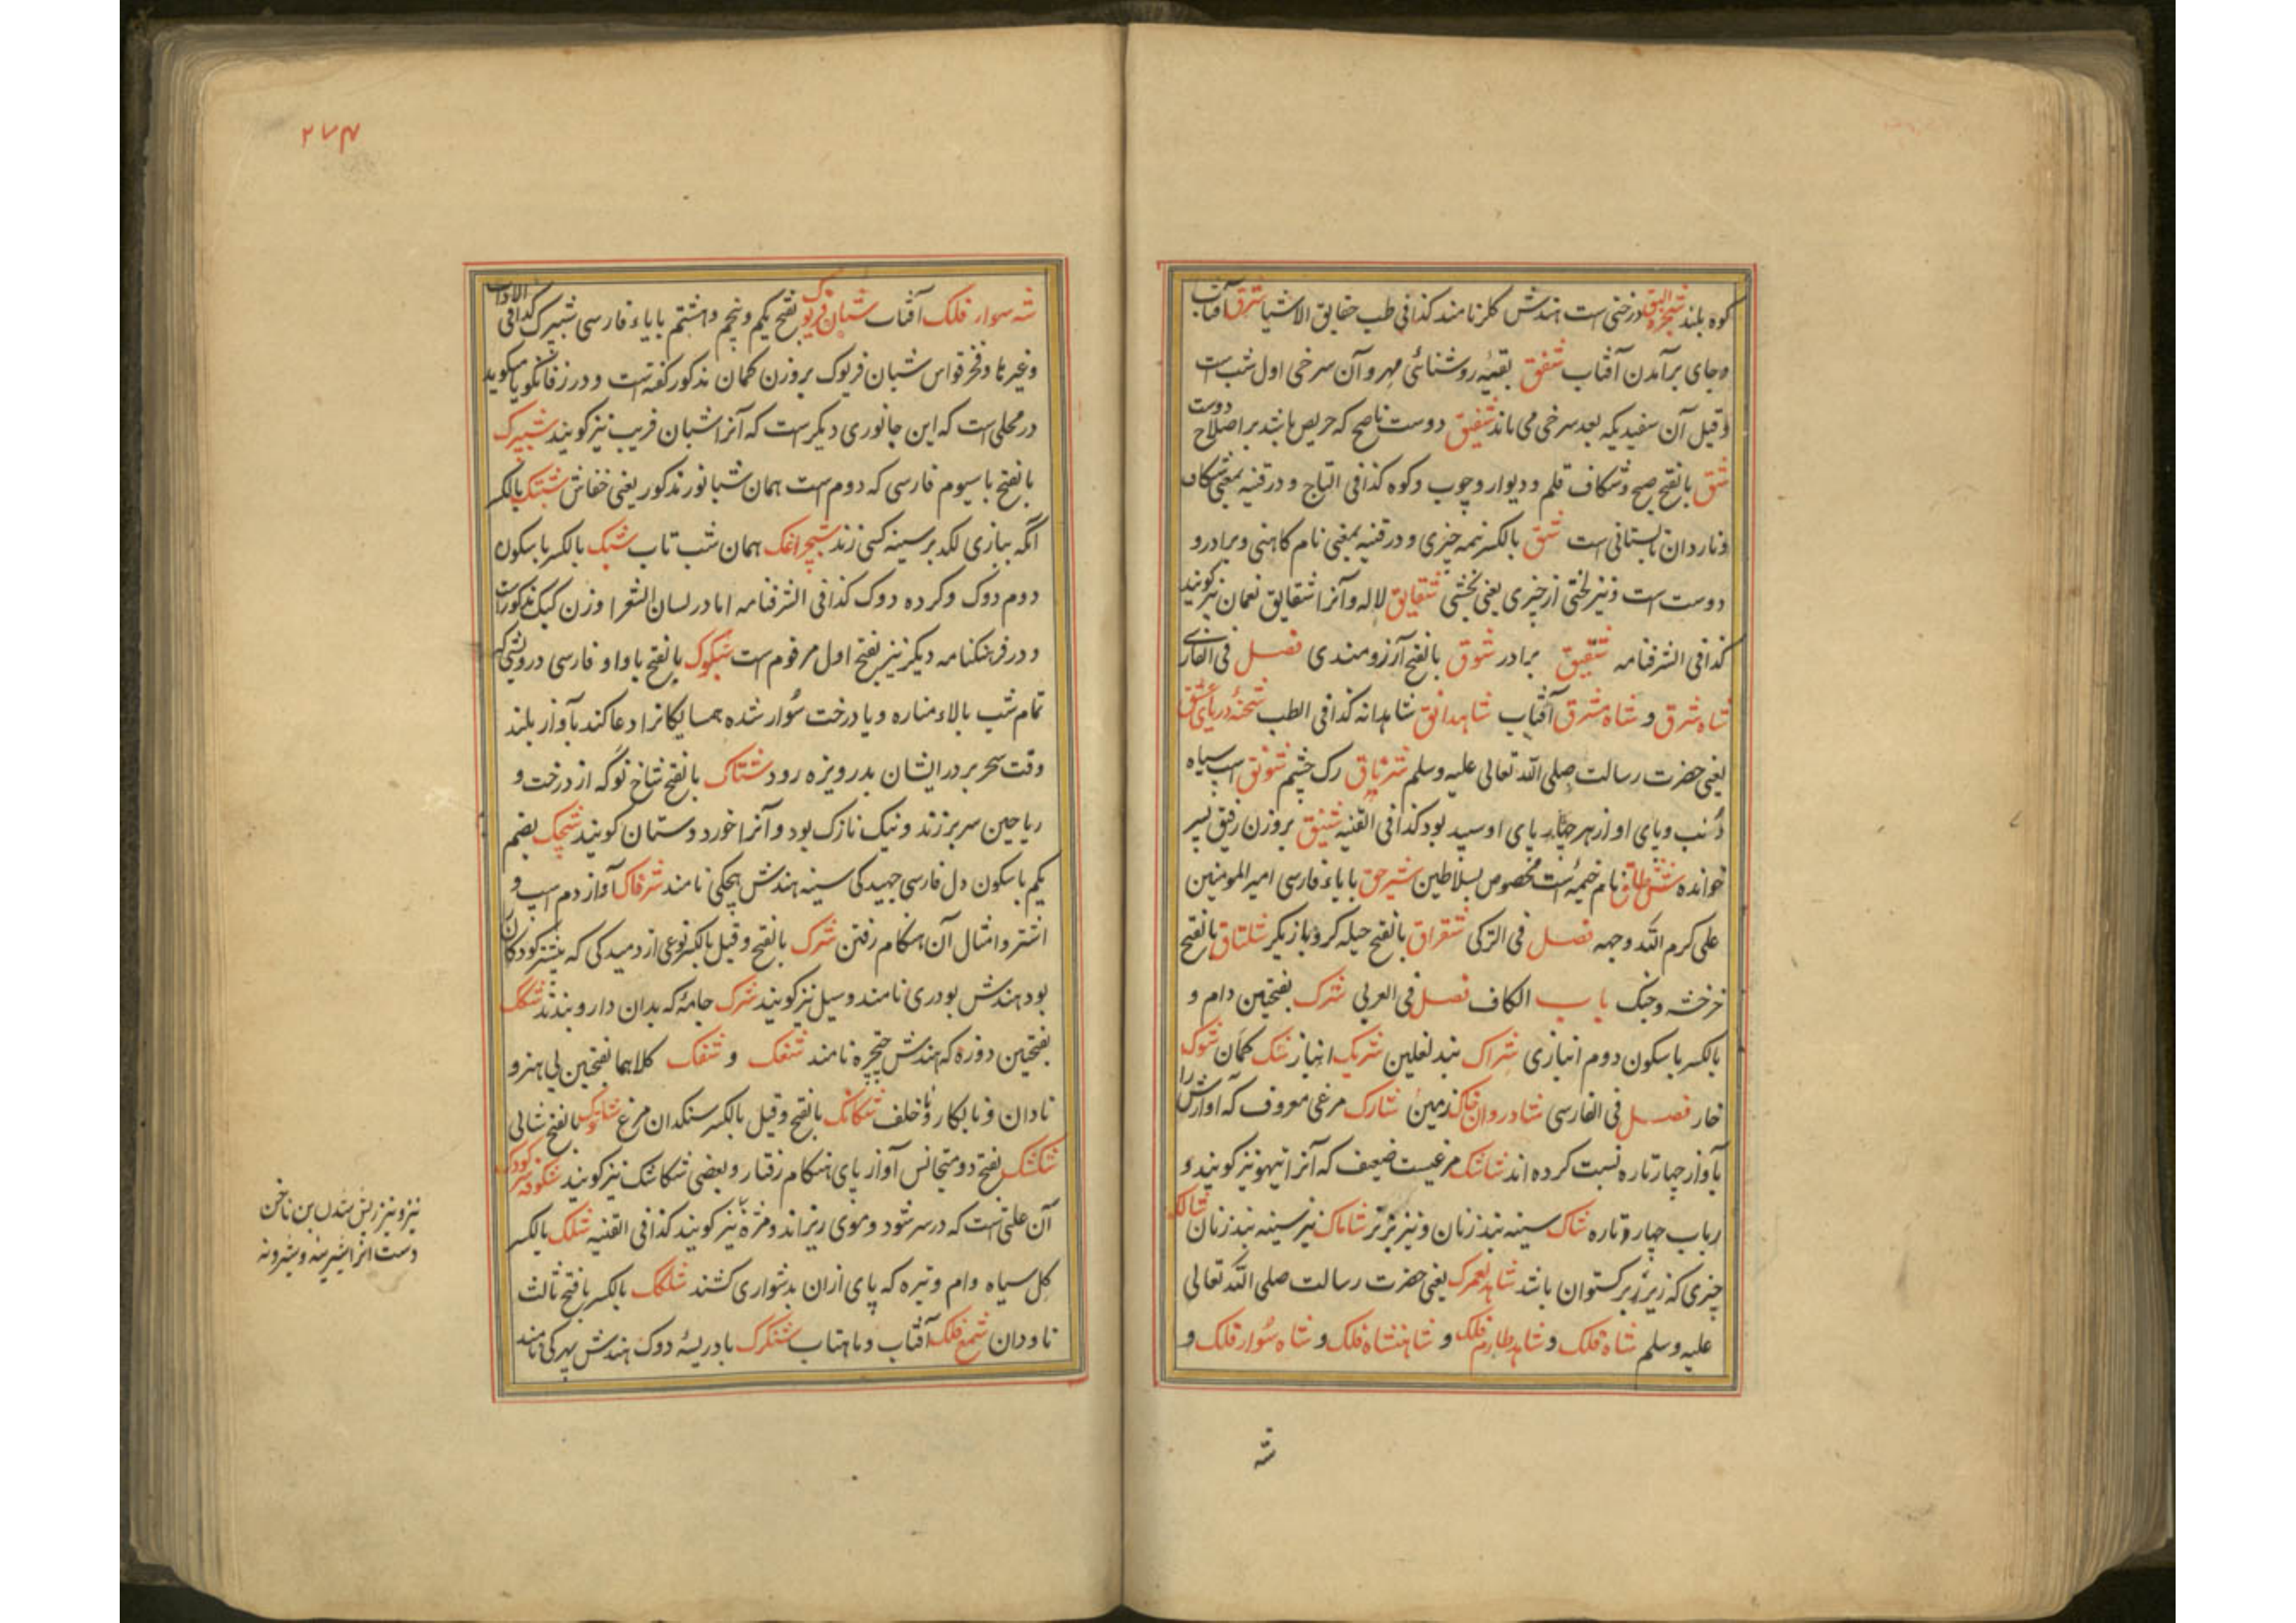 کوه بلند شجرة البق درختی است هندش کلر نامند کذا فی طب حقایق الاشیا شرق آفتاب
و جای برآمدن آفتاب شفق بقیه روشنائی مهر و آن سرخی اول شب است
و قیل آن سفیدیکه بعد سرخی می ماند شفیق دوست ناصح که حریص باشد بر اصلاح دوست
شق بالفتح صبح و شکاف قلم و دیوار و چوب و کوه کذا فی التاج و در قنیه بمعنی شکاف
و ناردان بستانی است شق بالکسر نیمه چیزی و در قنیه بمعنی نام کاهنی و برادر و
دوست است و نیز لختی از چیزی یعنی بخشی شقایق لاله و آنرا شقایق نعمان نیز گویند
کذا فی الشرفنامه شقیق برادر شوق بالفتح آرزومندی فصل فی الفارسی
شاه شرق و شاه مشرق آفتاب شاهدانق شاهدانه کذا فی الطب شحنه دریای عشق
یعنی حضرت رسالت صلی الله تعالی علیه وسلم شریاق رک چشم شولق اسپ سیاه
دنب و پای او از هر چهار پای او سپید بود کذا فی القنیه شینق بروزن رفیق پسر
خوانده شش طاق نام خیمه است مخصوص بسلاطین شیر حق بایاء فارسی امیر المومنین
علی کرم الله وجهه فصل فی الترکی شقراق بالفتح حیله کر و بازیکر شلتاق بالفتح
خرخشه و جنک باب الکاف فصل فی العربی شرک بفتحتین دام و
بالکسر با سکون دوم انبازی شراک بند نعلین شریک انباز شک کمان شوک
خار فصل فی الفارسی شادروان خاک زمین شارک مرغی معروف که آوازش را
بآواز چهارتاره نسبت کرده اند شاشک مرغیست ضعیف که آنرا تیهو نیز گویند و
رباب چهار تاره شاک سینه بند زنان و نیز بز نر شاماک نیز سینه بند زنان شالک
چیزی که زیر زبر کستوان باشد شاهد لعمرک یعنی حضرت رسالت صلی الله تعالی
علیه وسلم شاه فلک و شاهد طارم فلک و شاهنشاه فلک و شاه سوار فلک و
شه
۲۷۴
شه سوار فلک آفتاب شبان فریوک بفتح یکم و پنجم و هشتم بایاء فارسی شپیرک کذا فی الادات
و غیرها و فخر قواس شبان فریوک بروزن کمان مذکور گفته است و در زفانگویا میگوید
در محلی است که این جانوری دیکر است که آنرا شبان فریب نیز گویند شپیرک
بالفتح با سیوم فارسی که دوم است همان شبانور مذکور یعنی خفاش شتک بالکسر
آنکه ببازی لکد بر سینه کسی زند شبچراغک همان شب تاب شبک بالکسر با سکون
دوم دوک و کرده دوک کذا فی الشرفنامه اما در لسان الشعرا وزن کیک مذکور است
و در فرهنکنامه دیکر نیز بفتح اول مرقوم است شبکوک بالفتح با واو فارسی درویشی که
تمام شب بالاء مناره و یا درخت سوار شده همسایکانرا دعا کند بآواز بلند
وقت سحر بر در ایشان بدریوزه رود شتاک بالفتح شاخ نو که از درخت و
ریاحین سر بر زند و نیک نازک بود و آنرا خورد دستمان گویند شچک بضم
یکم با سکون دل فارسی جهیدکی سینه هندش هچکی نامند شرفاک آواز دم اسپ و
اشتر و امثال آن هنکام رفتن شرک بالفتح و قیل بالکسر نوعی از دمیدکی که بیشتر کودکان
بود هندش بودری نامند و سیل نیز گویند شرک جامه که بدان دارو بندند شکک
بفتحتین دوزه که هندش چچره نامند شغک و شفک کلاهما بفتحتین بی هنر و
نادان و نابکار و ناخلف شکانک بالفتح و قیل بالکسر سنکدان مرغ بالفتح شالی
شکشک بفتح دو متجانس آواز پای هنکام رفتار و بعضی شکاشک نیز گویند شکوفه سر کودک
آن علتی است که در سر شود و موی ریزاند و نیز گویند کذا فی القنیه شلک بالکسر
کل سیاه وام و تیره که پای ازان بدشواری کشند شلکک بالکسر با فتح ثالث
ناودان شمع فلک آفتاب و ماهتاب شنکرک بادریسه دوک هندش پهرکی نامند
نیز و نیز ریش شدن بن ناخن
دست آنرا شیرینه و شیرونه